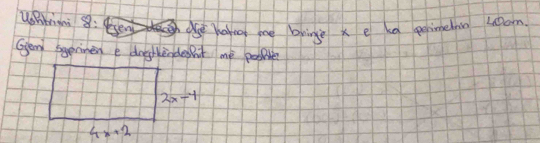 Ushtrimi 8: Gjeni Një katror me brinjë x e ka perimetrin 40cm.
Gjeni sipërfaqen e drejtkëndëshit më poshtë
2x-1
4x+2